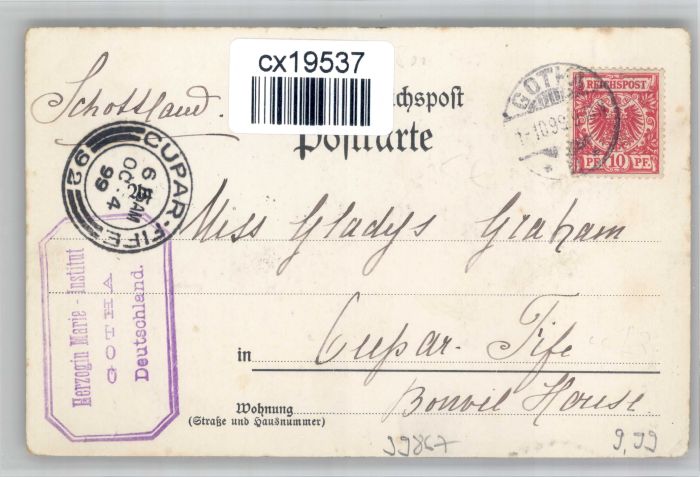 cx19537
Schottland.
chspost
Postkarte
GOTHA
1-10 99
REICHSPOST
PF 10 PF
CUPAR-FIFE
6 15 AM
OC 4
99
92
Miss Gladys Graham
in Cupar. Fife
Wohnung
(Straße und Hausnummer)
Bonvil House
Herzogin Marie-Institut
GOTHA
Deutschland.
9,99